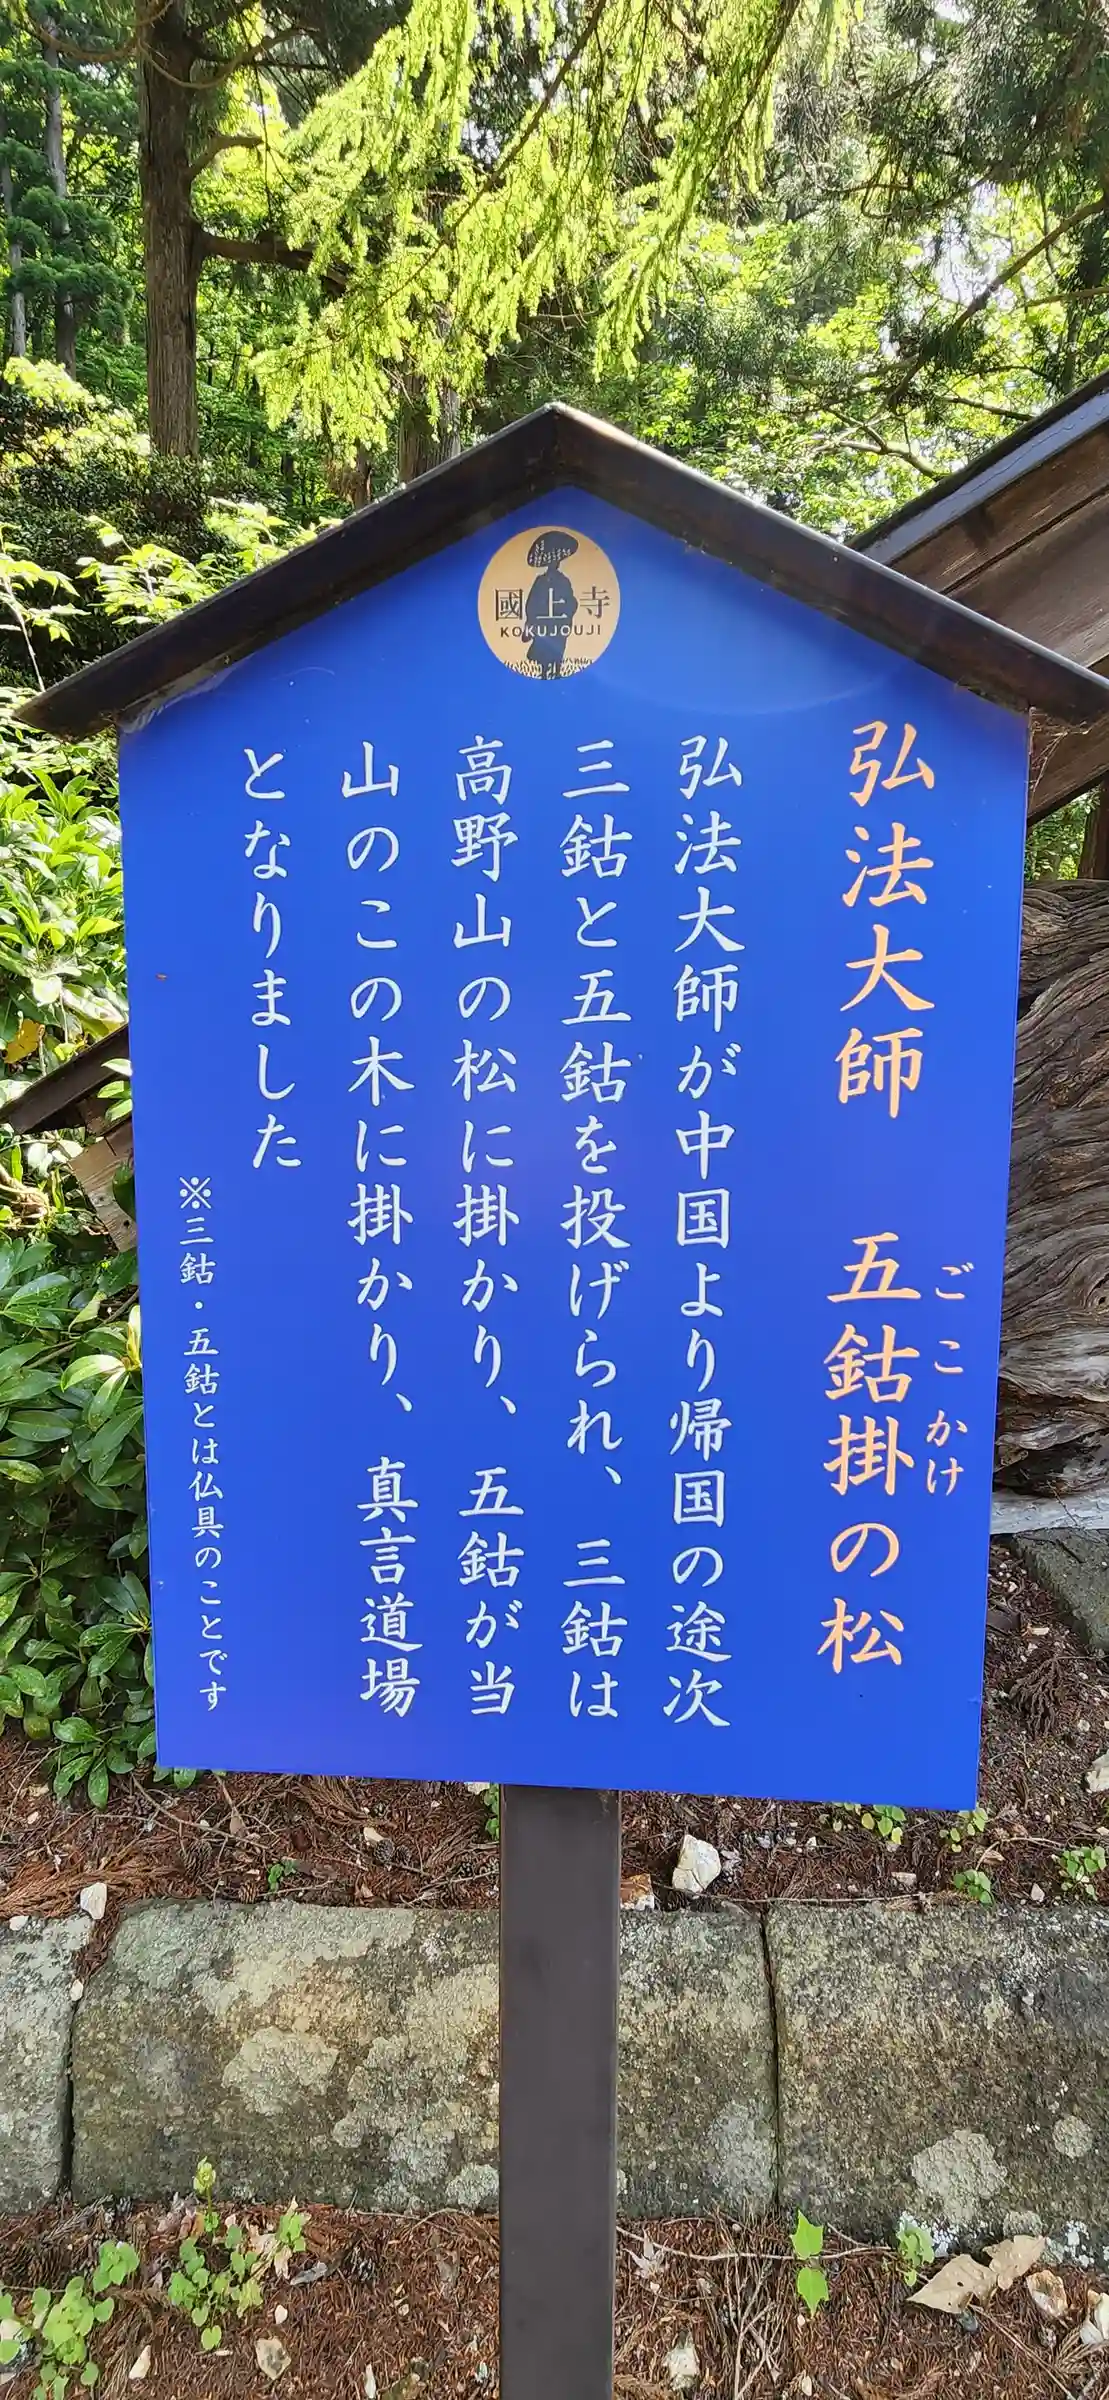 國上寺
KOKUJOUJI
弘法大師 五鈷掛の松
ごこかけ
弘法大師が中国より帰国の途次
三鈷と五鈷を投げられ、三鈷は
高野山の松に掛かり、五鈷が当
山のこの木に掛かり、真言道場
となりました
※三鈷・五鈷とは仏具のことです